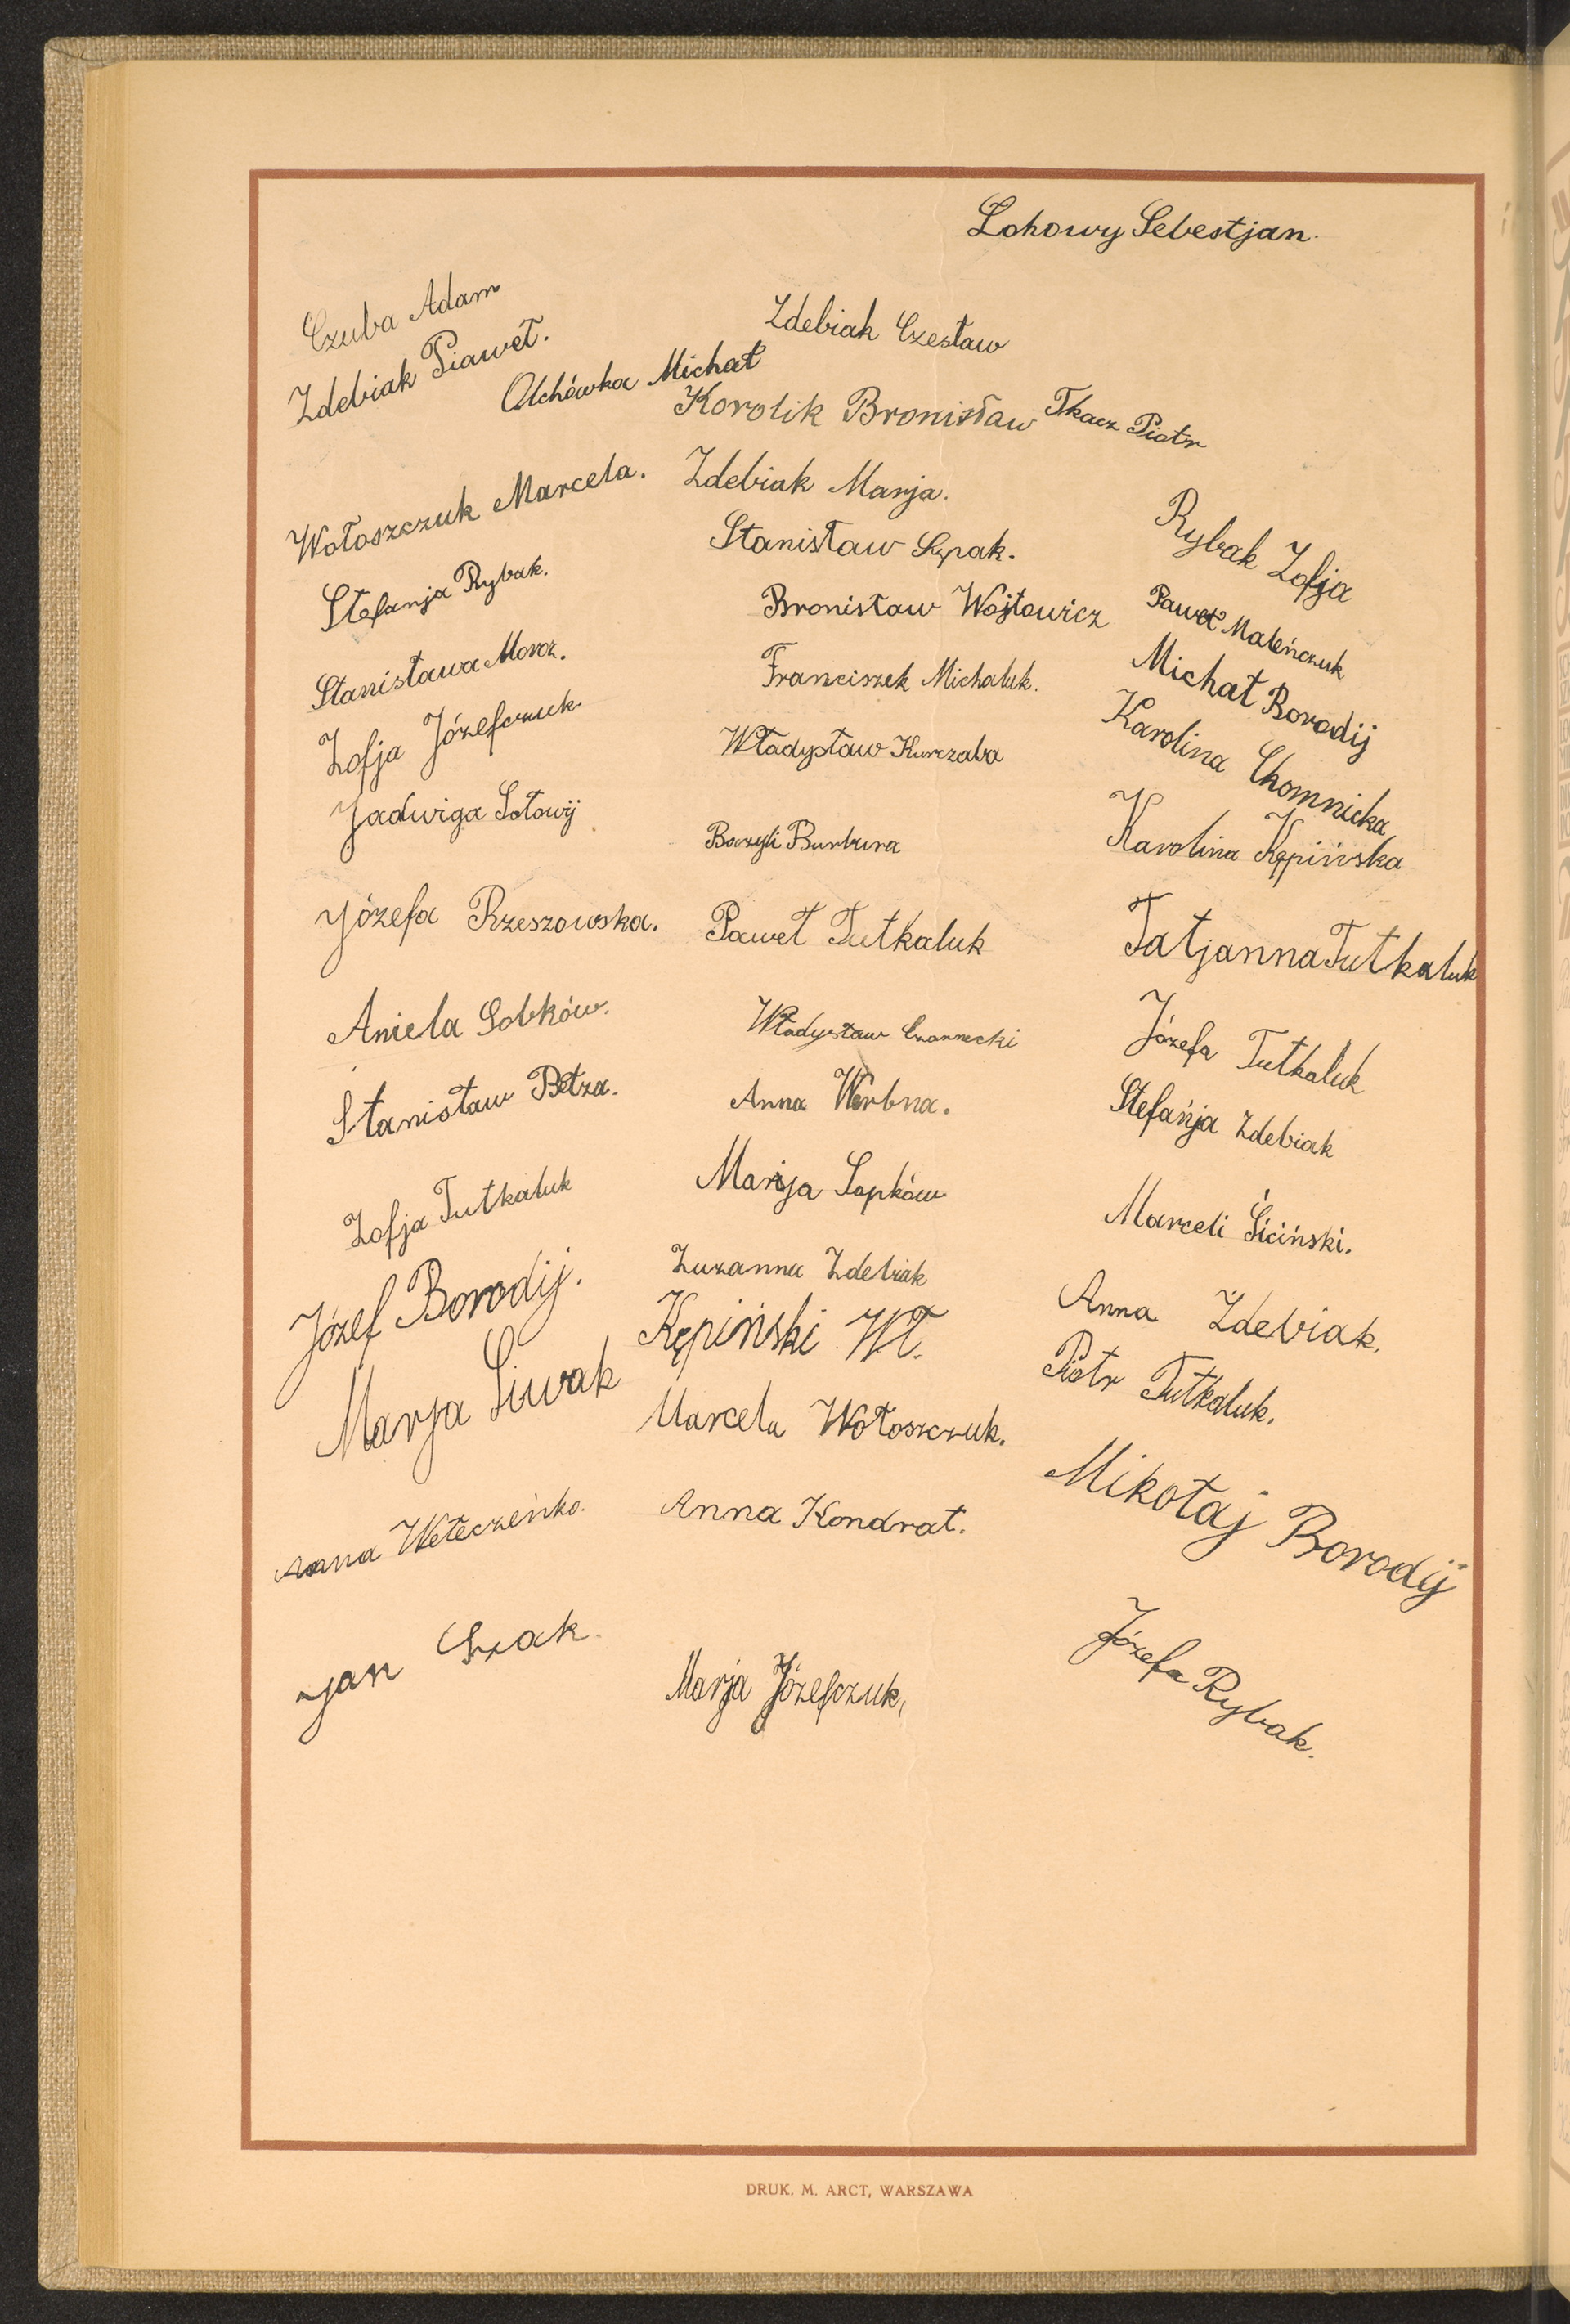 Lohowy Sebestjan.
Czuba Adam
Zdebiak Czesław
Zdebiak Piaweł.
Olchówka Michał
Korolik Bronisław
Tkacz Piotr
Wołoszczuk Marcela.
Zdebiak Marja.
Rybak Zofja
Stanisław Sępak.
Stefanja Rybak.
Bronisław Wojtowicz
Paweł Maleńczuk
Stanisława Moroz.
Franciszek Michaluk.
Michał Borodij
Zofja Józefczuk
Władysław Kurczaba
Karolina Chomnicka
Jadwiga Sołowij
Burbura
Karolina Kępińska
Józefa Rzeszowska.
Paweł Tutkaluk
Tatjanna Tutkaluk
Aniela Sobków.
Władysław Czarnecki
Józefa Tutkaluk
Stanisław Betza.
Anna Werbna.
Stefańja Zdebiak
Zofja Tutkaluk
Marija Sapków
Marceli Śiciński.
Józef Borodij.
Zuzanna Zdebiak
Anna Zdebiak.
Marja Siwak
Kępiński Wł.
Piotr Tutkaluk.
Marcela Wołoszczuk.
Mikołaj Borodij
Anna Wełeczeńko.
Anna Kondrat.
Jan
Marja Józefczuk,
Józefa Rybak.
DRUK. M. ARCT, WARSZAWA